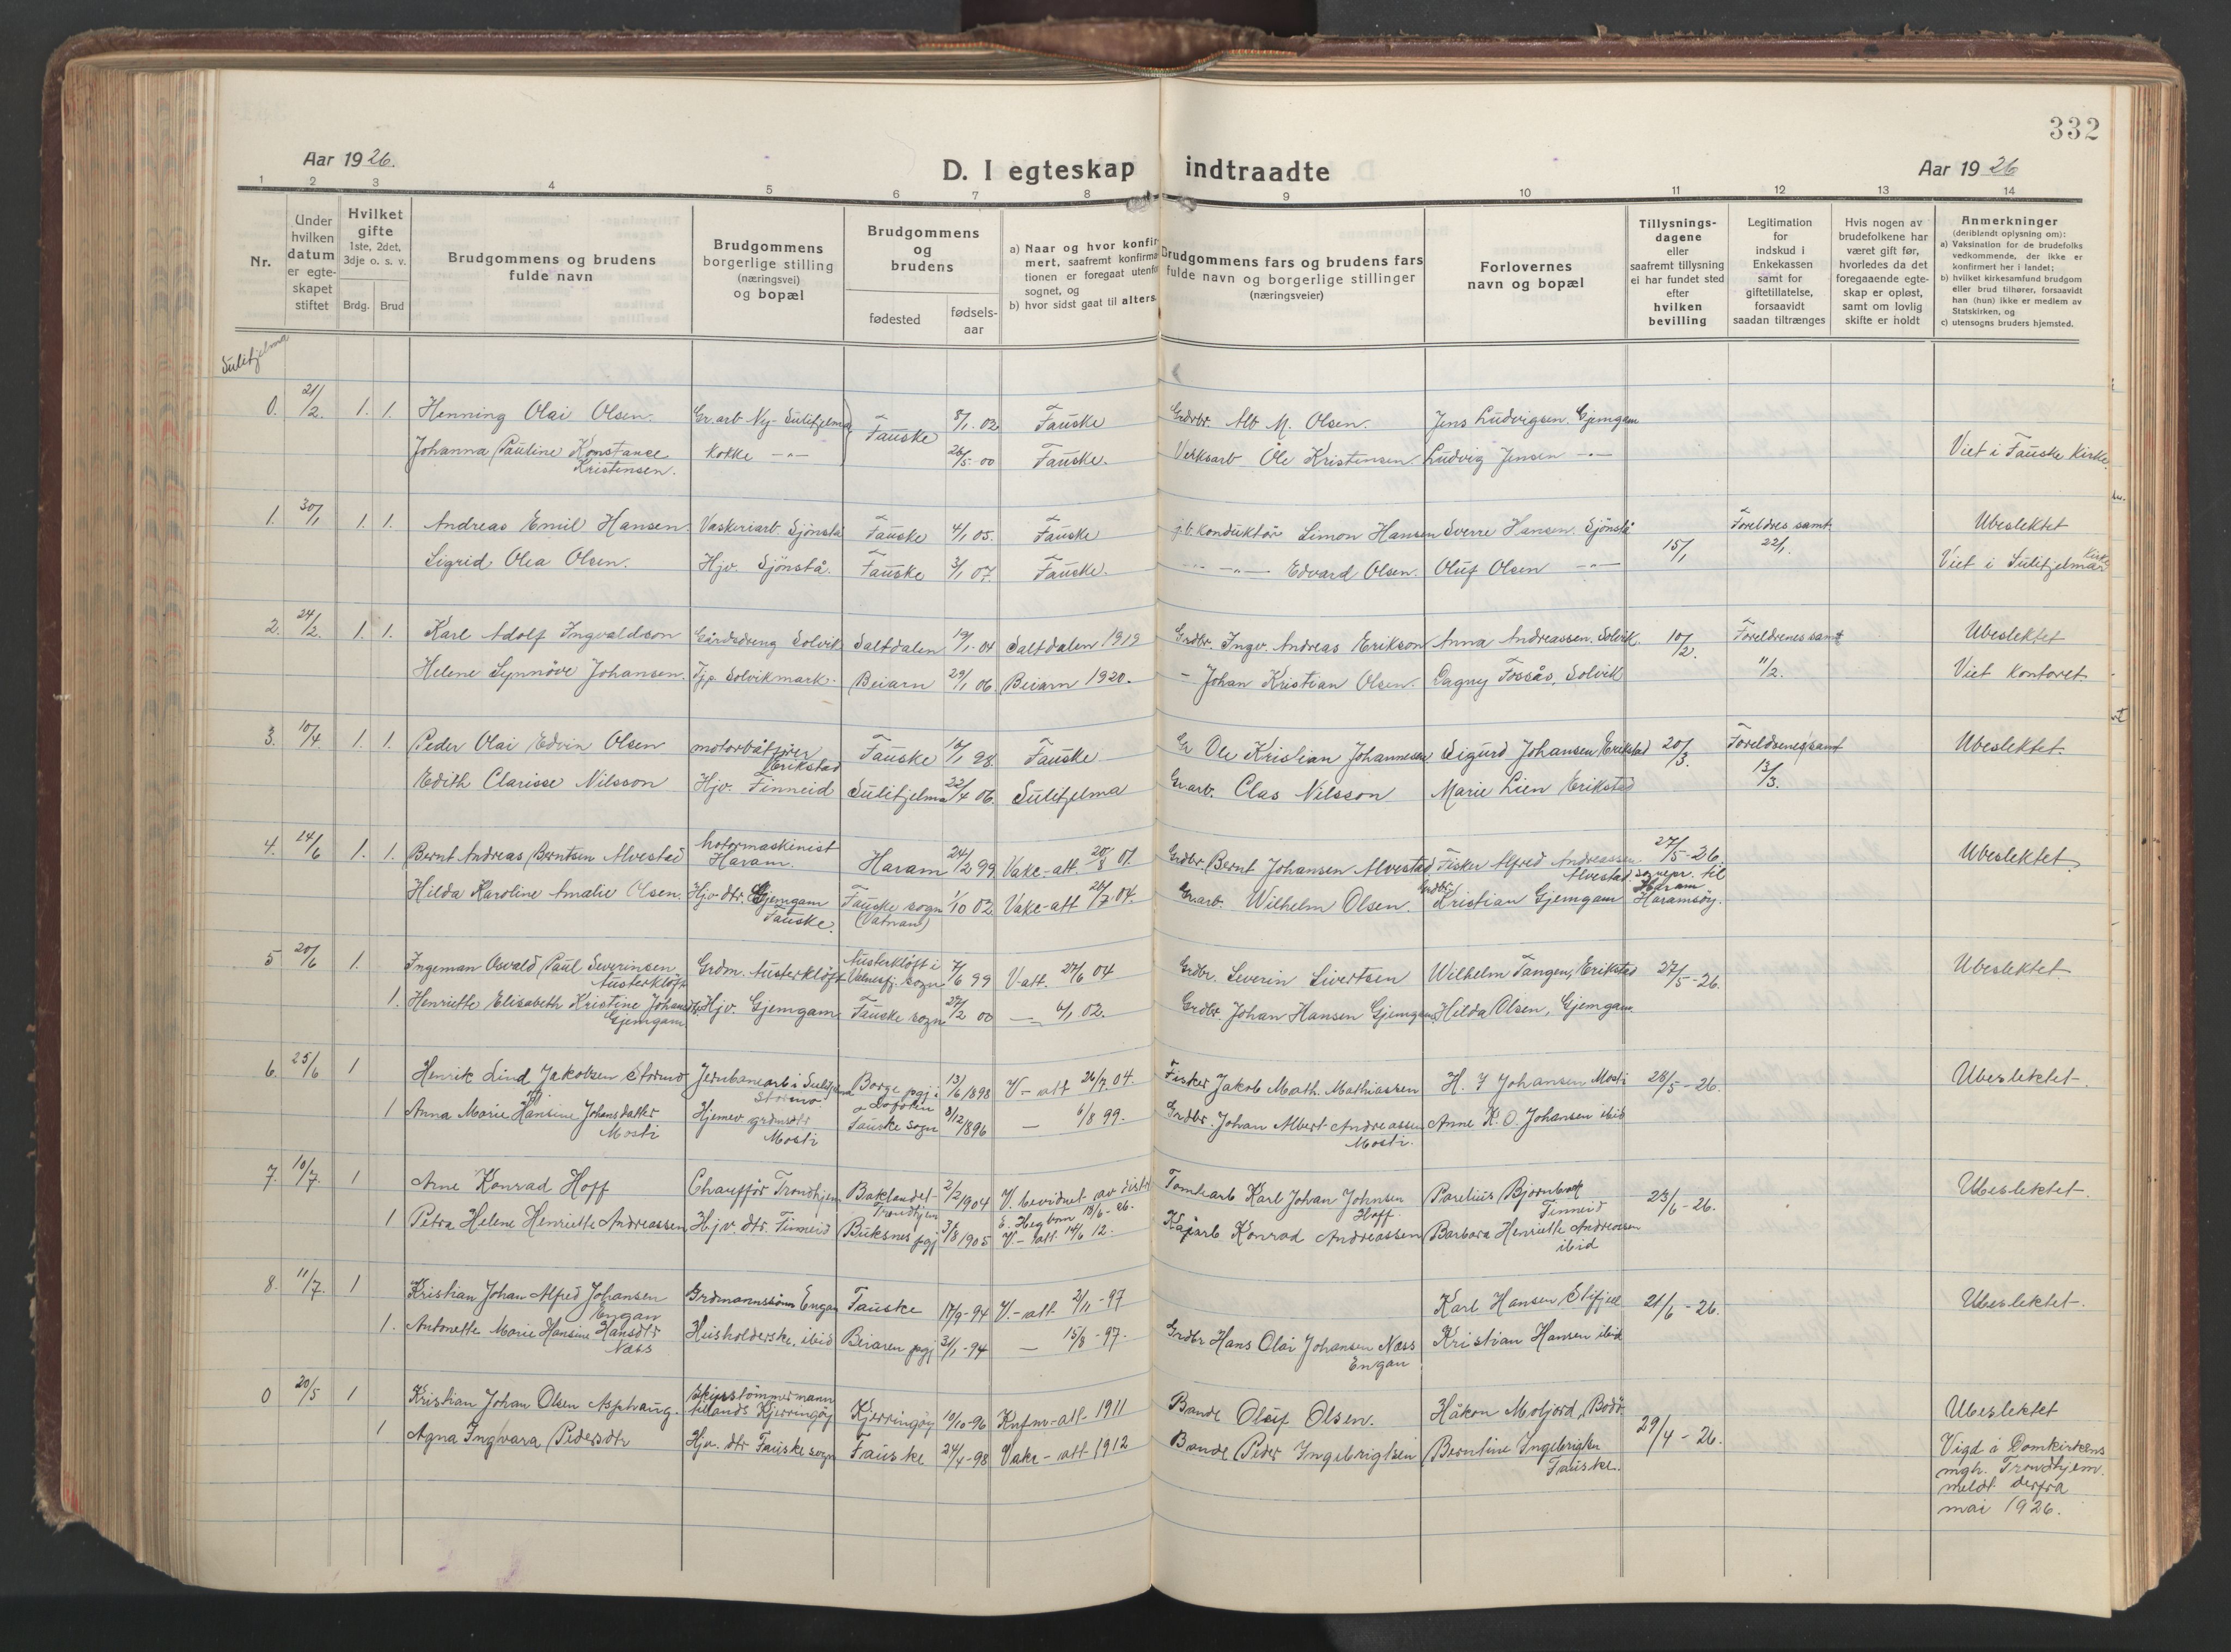 332
Aar 1926.
D. I egteskap indtraadte
Aar 1926
1 2 3 4 5 6 7 8 9 10 11 12 13 14
Nr.
Under hvilken datum er egteskapet stiftet
Hvilket gifte
1ste, 2det, 3dje o. s. v.
Brdg. Brud
Brudgommens og brudens fulde navn
Brudgommens borgerlige stilling (næringsvei) og bopæl
Brudgommens og brudens
fødested
fødsels-aar
a) Naar og hvor konfirmert, saafremt konfirmationen er foregaat utenfor sognet, og
b) hvor sidst gaat til alters.
Brudgommens fars og brudens fars fulde navn og borgerlige stillinger (næringsveier)
Forlovernes navn og bopæl
Tillysnings-dagene eller saafremt tillysning ei har fundet sted efter hvilken bevilling
Legitimation for indskud i Enkekassen samt for giftetillatelse, forsaavidt saadan tiltrænges
Hvis nogen av brudefolkene har været gift før, hvorledes da det foregaaende egteskap er opløst, samt om lovlig skifte er holdt
Anmerkninger
(deriblandt oplysning om):
a) Vaksination for de brudefolks vedkommende, der ikke er konfirmert her i landet;
b) hvilket kirkesamfund brudgom eller brud tilhører, forsaavidt han (hun) ikke er medlem av Statskirken, og
c) utensogns bruders hjemsted.
Sulitjelma
0. 21/2. 1. 1. Henning Olai Olsen. Gr.arb Ny-Sulitjelma Fauske 8/1 02 Fauske Grdbr. Alb M. Olsen. Jens Ludvigsen. Gjemgam
Johanna Pauline Konstance Kristensen. Kokke -"- 26/5 00 Fauske. Verksarb Ole Kristensen. Ludvig Jensen -"- Viet i Fauske Kirke.
1. 30/1 1. 1. Andreas Emil Hansen. Vaskeriarb. Sjönstå Fauske 4/1 05. Fauske j.b. konduktör Simon Hansen Sverre Hansen. Sjönstå 15/1 Foreldres samt. 22/1. Ubeslektet
Sigrid Olea Olsen. Hjv. Sjönstå. Fauske 3/1 07. Fauske. -"- Edvard Olsen. Oluf Olsen -"- Viet i Sulitjelma Kirke
2. 24/2. 1. 1. Karl Adolf Ingvaldson Gårdsdreng Solvik Saltdalen 19/1 04 Saltdalen 1919 Grdbr. Ingv. Andreas Erikson Anna Andreassen. Solvik. 10/2. Foreldrenes samt 11/2. Ubeslektet
Helene Synnöve Johansen. Tjp. Solvikmark. Beiarn 29/1 06 Beiarn 1920. - Johan Kristian Olsen. Dagny Fossås, Solvik Viet Kontoret.
3. 10/4 1. 1. Peder Olai Edvin Olsen motorbåtfører Erikstad Fauske 10/1 98 Fauske Gr Ole Kristian Johannessen Sigurd Johansen Erikstad 20/3. Foreldrenes samt 13/3. Ubeslektet.
Edith Clarisse Nilsson Hjv. Finneid Sulitjelma 22/4 06. Sulitjelma Gr.arb. Clas Nilsson Marie Lien Erikstad
4. 14/6 1. 1. Bernt Andreas Berntsen Alvestad Motormaskinist Haram. Haram 24/2 99 Vakc-att. 20/8 01. Grdbr. Bernt Johansen Alvestad Fisker Alfred Andreassen Alvestad. 27/5-26. sognepr. til Haram Haramsöy. Ubeslektet.
Hilda Karoline Amalie Olsen. Hjv dtr. Gjemgam Fauske. Fauske sogn (Vatnan) 1/10 02 Vakc-att 26/7 04. Gr.arb. Wilhelm Olsen. Grdbr. Kristian Gjemgam
5 20/6 1. Ingeman Osvald Paul Severinsen Austerklöft Grdm. Austerklöft Austerklöft i Valnesfj. sogn 7/6 99 V-att. 27/6 04 Grdbr. Severin Sivertsen Wilhelm Tangen, Erikstad 27/5-26. Ubeslektet
1. Henriette Elisabeth Kristine Johansdtr Gjemgam Hjv. Gjemgam Fauske sogn 27/2 00 — 6/1 02. Grdbr. Johan Hansen Gjemgam Hilda Olsen, Gjemgam.
6. 25/6 1 Henrik Lind Jakobsen Stormo Jernbanearb i Sulitjelma Stormo. Borge pgj i Lofoten 13/6 1898 V-att 26/7. 04. Fisker Jakob Math. Mathiassen H. J Johansen Mosti 28/5-26. Ubeslektet.
1 Anna Marie Hansine Johansdatter Mosti Hjemev grdmdtr Mosti Fauske sogn 8/12 1896 — 6/8 99. Grdbr. Johan Albert Andreassen Mosti. Anne K. O. Johansen ibid
7. 10/7. 1 Arne Konrad Hoff Chaufför Trondhjem Baklandet Trondhjem 2/2 1904 V. bevidnet av distr E. Hegbom 18/6-26. Tomtearb Karl Johan Johnsen Hoff. Parelius Bjornbak Finneid 23/6-26. Ubeslektet.
1 Petra Helene Henriette Andreassen Hjv. dtr. Finneid Buksnes pgj 31/8 1905 V.-att 14/6 12. Kajarb Konrad Andreassen Barbara Henriette Andreassen ibid
8. 11/7. 1 Kristian Johan Alfred Johansen Engan Grdmannssönn Engan Fauske 17/9-94 V-att 2/11-97 Karl Hansen, Stifjell 21/6-26. Ubeslektet.
1. Antonette Marie Hansine Hansdtr Næss Husholderske, ibid Beiaren pgj 31/1-94 — 15/8-97. Grdbr Hans Olai Johansen Næss Engan Kristian Hansen ibid
0 20/5 1 Kristian Johan Olsen Asphaug. Skipstömmermann Kjerringöy Kjerringöy 10/10-96 Knfm-att. 1911 Bonde Oluf Olsen. Håkon Moljord, Bodö 29/4-26. Ubeslektet
1 Agna Ingvara Pedersdtr Hjv. dtr Fauske sogn Fauske 24/4-98 Vakc-att 1912 Bonde Peder Ingebrigtsen Berntine Ingebrigtsen Fauske. Vigd i Domkirkens mgh. Trondhjem. meldt derfra mai 1926.